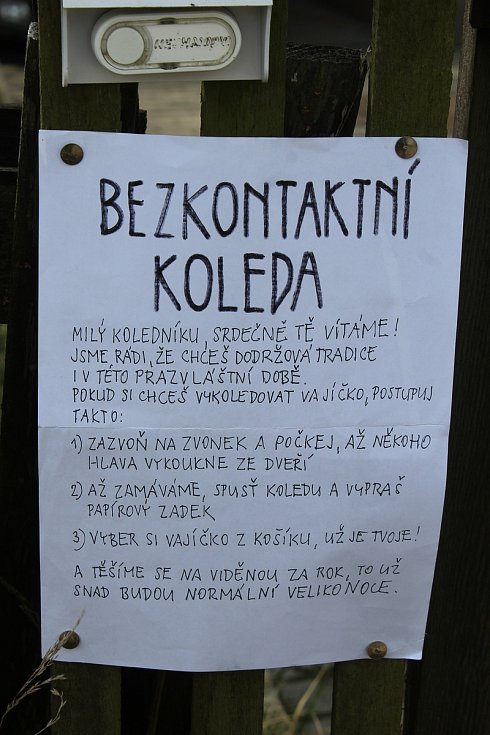 BEZKONTAKTNÍ
KOLEDA
MILÝ KOLEDNÍKU, SRDEČNĚ TĚ VÍTÁME!
JSME RÁDI, ŽE CHCEŠ DODRŽOVÁ TRADICE
I V TÉTO PRAZVLÁŠTNÍ DOBĚ.
POKUD SI CHCEŠ VYKOLEDOVAT VAJÍČKO, POSTUPUJ
TAKTO:
1) ZAZVOŇ NA ZVONEK A POČKEJ, AŽ NĚKOHO
HLAVA VYKOUKNE ZE DVEŘÍ
2) AŽ ZAMÁVÁME, SPUSŤ KOLEDU A VYPRAŠ
PAPÍROVÝ ZADEK
3) VYBER SI VAJÍČKO Z KOŠÍKU, UŽ JE TVOJE!
A TĚŠÍME SE NA VIDĚNOU ZA ROK, TO UŽ
SNAD BUDOU NORMÁLNÍ VELIKONOCE.